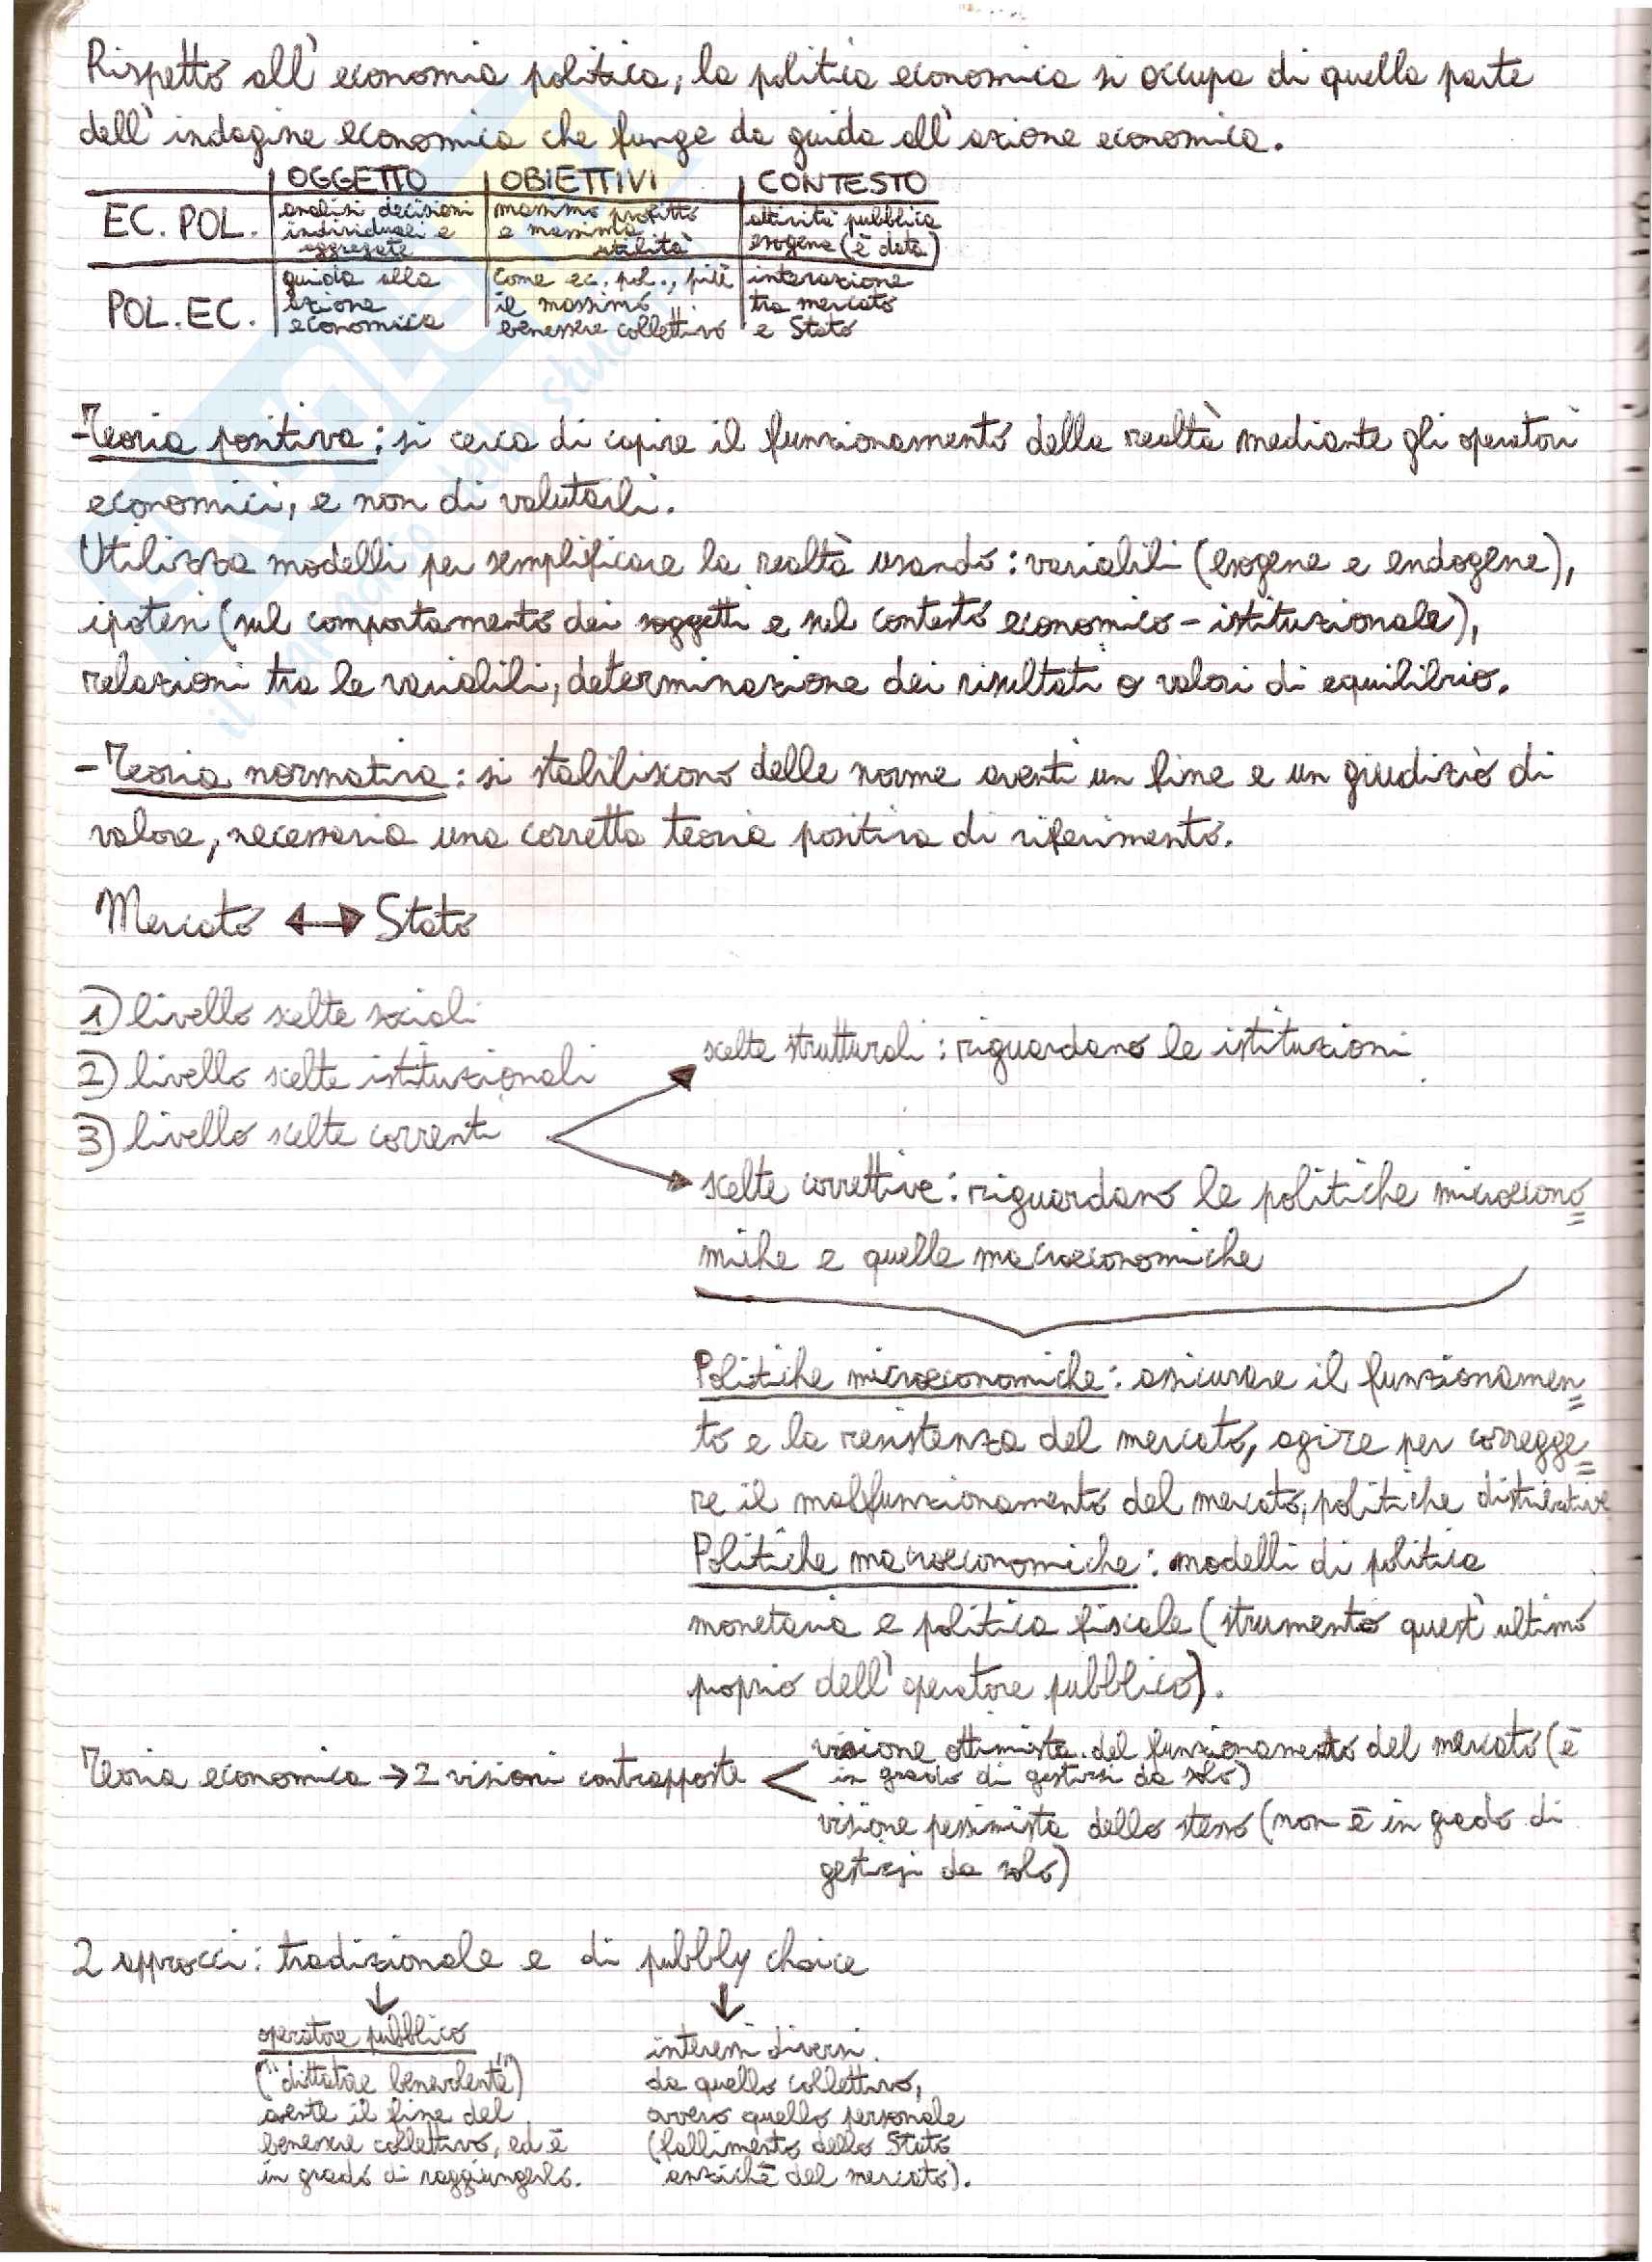 Rispetto all'economia politica, la politica economica si occupa di quella parte
dell'indagine economica che funge da guida all'azione economica.
OGGETTO OBIETTIVI CONTESTO
EC. POL. analisi decisioni individuali e aggregate massimo profitto e massima utilità attività pubblica esogena (è data)
POL. EC. guida alla azione economica come ec. pol., più il massimo benessere collettivo interazione tra mercato e Stato
- Teoria positiva: si cerca di capire il funzionamento della realtà mediante gli operatori
economici, e non di valutarli.
Utilizza modelli per semplificare la realtà usando: variabili (esogene e endogene),
ipotesi (sul comportamento dei soggetti e sul contesto economico-istituzionale),
relazioni tra le variabili, determinazione dei risultati o valori di equilibrio.
- Teoria normativa: si stabiliscono delle norme aventi un fine e un giudizio di
valore, necessaria una corretta teoria positiva di riferimento.
Mercato ↔ Stato
1) livello scelte sociali
2) livello scelte istituzionali
3) livello scelte correnti
scelte strutturali: riguardano le istituzioni
scelte correttive: riguardano le politiche microecono=
miche e quelle macroeconomiche
Politiche microeconomiche: assicurare il funzionamen=
to e la resistenza del mercato, agire per corregge=
re il malfunzionamento del mercato, politiche distributive
Politiche macroeconomiche: modelli di politica
monetaria e politica fiscale (strumento quest'ultimo
proprio dell'operatore pubblico).
Teoria economica → 2 visioni contrapposte <
visione ottimista del funzionamento del mercato (è
in grado di gestirsi da solo)
visione pessimista dello stesso (non è in grado di
gestirsi da solo)
2 approcci: tradizionale e di pubbly choice
↓ ↓
operatore pubblico
("dittatore benevolente")
avente il fine del
benessere collettivo, ed è
in grado di raggiungerlo.
interessi diversi
da quello collettivo,
ovvero quello personale
(fallimento dello Stato
anziché del mercato).